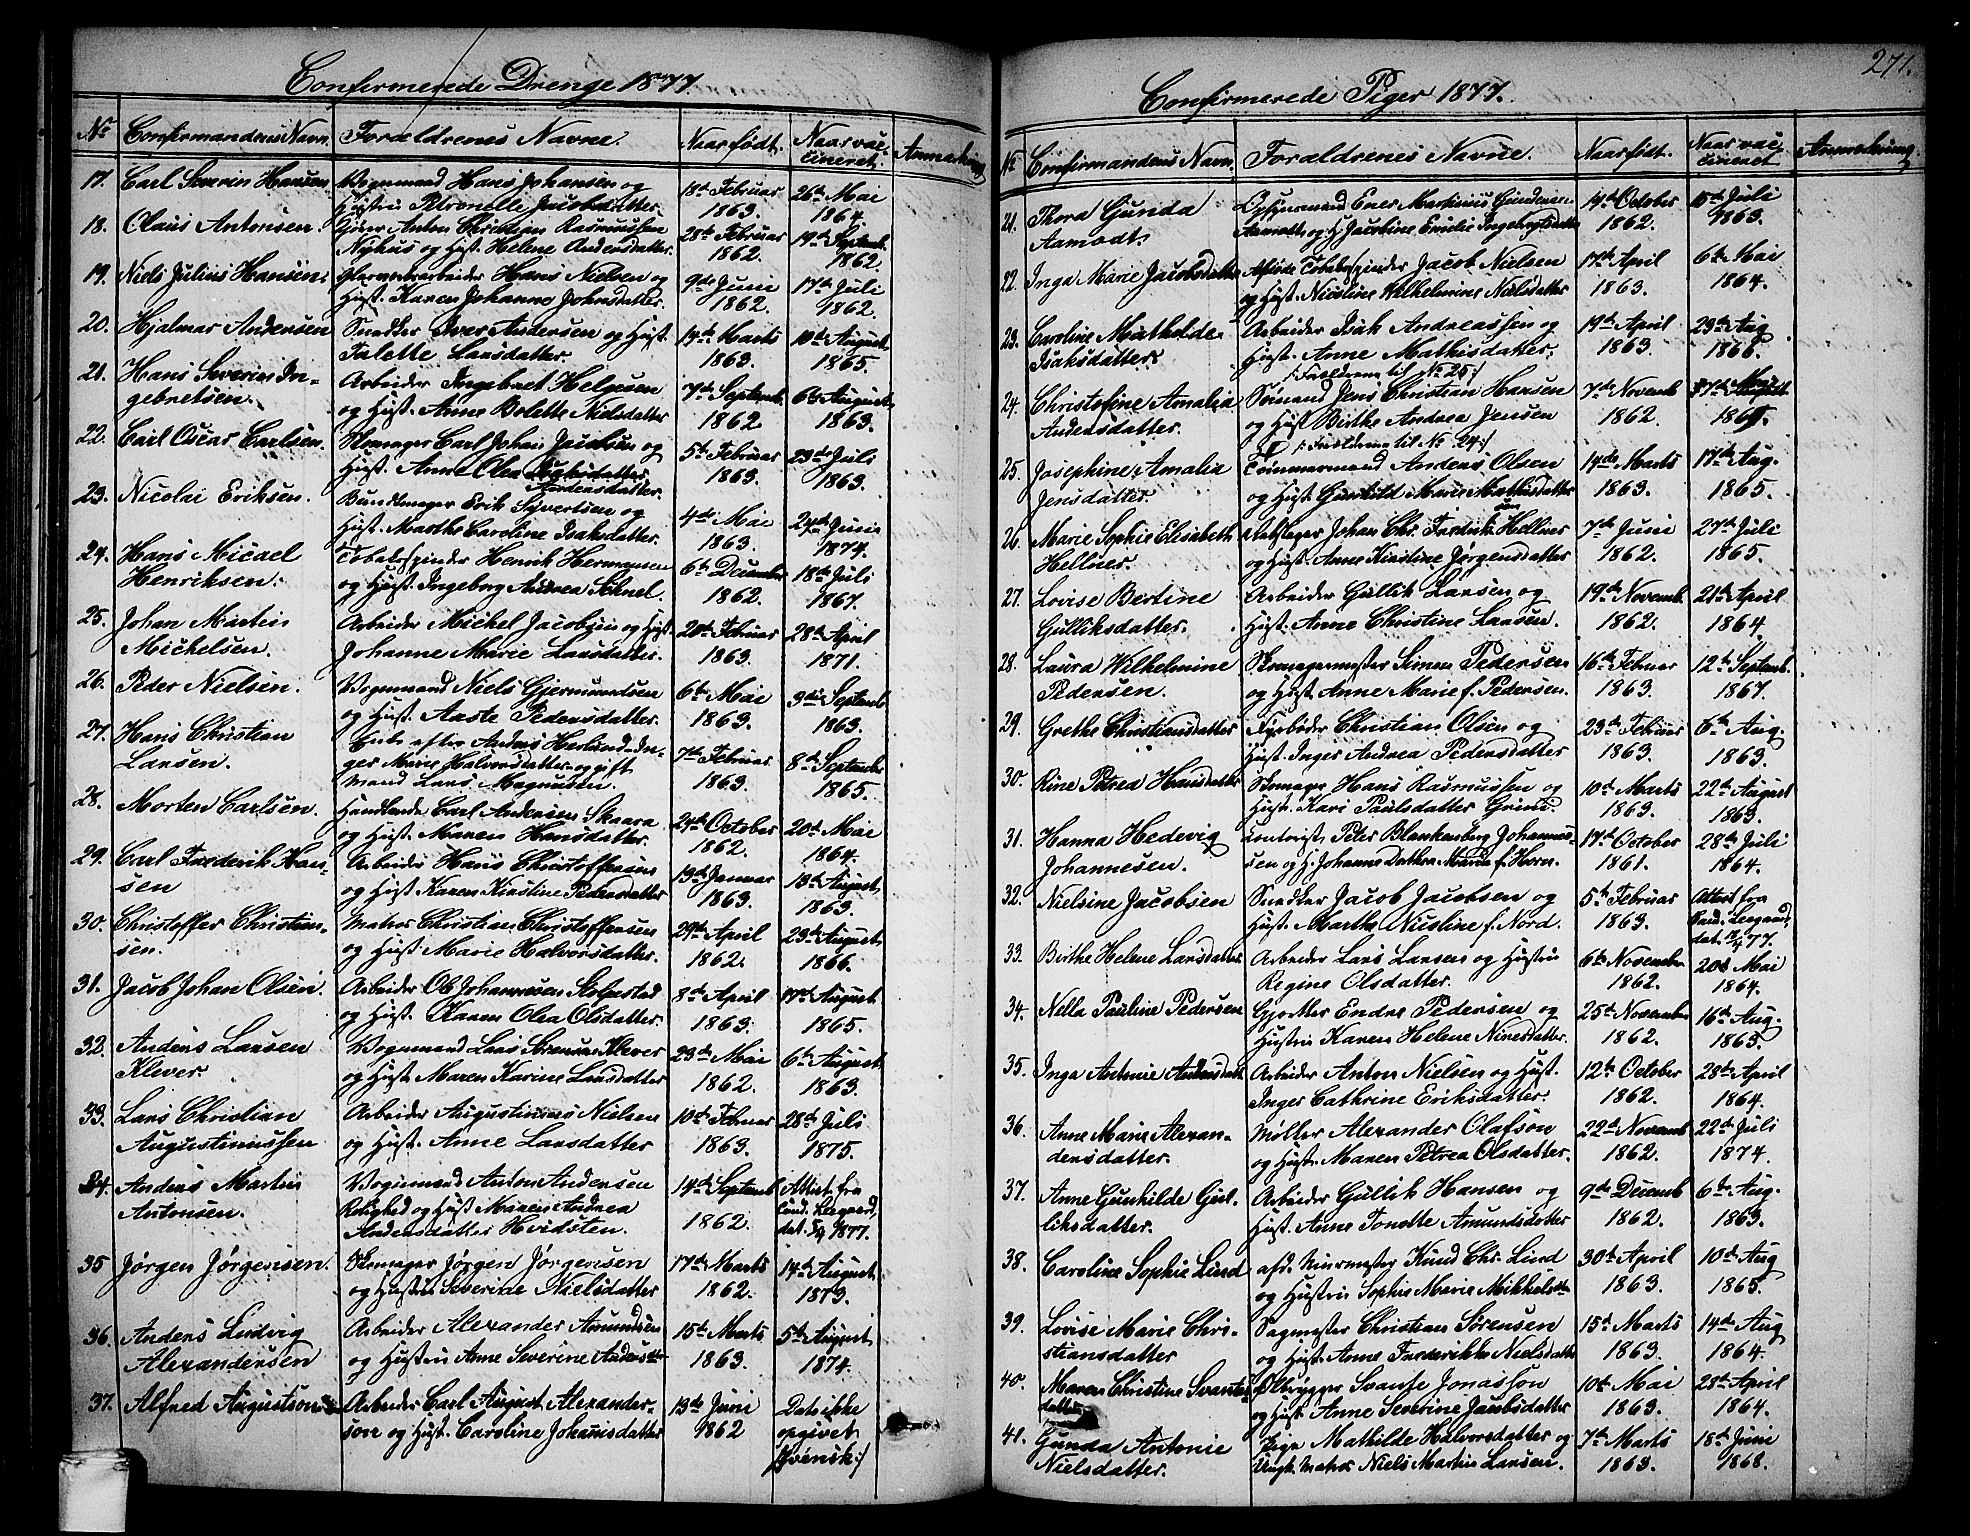 Confirmerede Drenge 1877.
No Confirmandens Navn. Forældrenes Navne. Naar født. Naar vac- Anmærkning
cineret.
17. Carl Severin Hansen Vognmand Hans Johansen og 18de Februar 26de Mai
Hustru Petronelle Jacobsdatter. 1863. 1864.
18. Olaus Antonsen. Anton Christian Rasmussen 28de Februar 19de Septemb.
Nyhus og Hust. Helene Andersdatter. 1862. 1862.
19. Niels Julius Hansen. Hans Nielsen og 9de Juni 17de Juli
Hust. Karen Johanne Johnsdatter. 1862. 1862.
20. Hjalmar Andersen Snedker Iver Andersen og Hust. 14de Marts 10de August
Talette Larsdatter. 1863. 1865.
21. Hans Severin In- Arbeider Ingebret Helgesen 7de Septemb. 6te August
gebretsen. og Hust. Anne Bolette Nielsdatter 1862. 1863.
22. Carl Oscar Carlsen. Skomager Carl Johan Jacobsen og 5te Februar 23de Juli
Hust. Anne Olea Andersdatter. 1863. 1863.
23. Nicolai Eriksen. Bundtmager Erik Syvertsen og 4de Mai 24de Juni
Hust. Marthe Caroline Isaksdatter. 1863. 1874.
24. Hans Micael Tobakspinder Henrik Hermansen 6te December 18de Juli
Henriksen. og Hust. Ingeborg Andrea Schnel. 1862. 1867.
25. Johan Martin Arbeider Michel Jacobsen og Hust. 20de Februar 28de April
Michelsen. Johanne Marie Larsdatter. 1863. 1871.
26. Peder Nielsen. Vognmand Niels Gjermundsen 6te Mai 9de Septemb
og Hust. Aaste Pedersdatter. 1863. 1863.
27. Hans Christian Enke efter Anders Herlund In-
Larsen. ger Marie Halvorsdatter og gift 7de Februar 8de September
Mand Lars Magnussen. 1863. 1865.
28. Morten Carlsen. Handlende Carl Andersen Skaara 24de October 20de Mai
og Hust. Maren Hansdatter. 1862. 1864.
29. Carl Frederik Han- Arbeider Hans Christoffersen 19de Januar 18de August
sen og Hust. Karen Kirstine Pedersdatter 1863. 1863.
30. Christoffer Christian- Matros Christian Christoffersen 29de April 23de August
sen. og Hust. Marie Halvorsdatter. 1862. 1866.
31. Jacob Johan Olsen. Arbeider Ole Johannesen Stolpestad 8de April 17de August
og Hust. Karen Olea Olsdatter. 1863. 1865.
32. Anders Larsen Vognmand Lars Sørensen Klever 23de Mai 6te August
Klever. og Hust. Maren Karine Larsdatter 1862. 1863.
33. Lars Christian Arbeider Augustinus Nielsen 10de Februar 28de Juli
Augustinussen og Hust. Anne Larsdatter 1863. 1875.
34. Anders Martin Vognmand Anton Andersen 14de Septemb Attest fra
Antonsen. og Hust. Maren Andrea 1862. Cand. Leegaard
Andersdatter Hvidsten. dat. 5/4 1877.
35 Jørgen Jørgensen. Skomager Jørgen Jørgensen 17de Marts 14de August
og Hustru Severine Nielsdatter 1862. 1873.
36. Anders Ludvig Arbeider Alexander Amundsen 15de Marts 5te August
Alexandersen og Hustru Anne Severine Andersdtr 1863. 1874.
37. Alfred Augustson Arbeider Carl August Alexander- 13de Juni Dato ikke
son og Hust. Caroline Johannisdatter 1862 opgivet
/: svensk :/
271.
Confirmerede Piger 1877.
No Confirmandens Navn. Forældrenes Navne. Naar født. Naar vac- Anmærkning.
cineret
21. Thora Gunda Opsynsmand Martinius Gundersen 14de October 15de Juli
Aamodt. Aamodt og H. Jacobine Emilie Ingebrigtsdatter 1862. 1863.
22. Inga Marie Jacobsdatter Afdøde Tobakspinder Jacob Nielsen 17de April 6te Mai
og Hust. Nicoline Wilhelmine Nielsdatter 1863. 1864.
23. Caroline Mathilde Arbeider Isak Andreassen og 19de April 23de Aug
Isaksdatter. Hust. Anne Mathisdatter. 1863. 1866.
/: Forældrene til No 25 :/
24. Christofine Amalia Sømand Jens Christian Hansen 7de Novemb
Andersdatter. og Hust. Birthe Andrea Jensen 1862.
/: Forældrene til No 24 :/
25. Josephine Amalia Tømmermand Anders Olsen 14de Marts 17de Aug.
Jensdatter. og Hust. Gunhild Marie Mathisdatter 1863. 1865.
26. Marie Sophie Elisabeth Johan Chr. Fredrik Hellner 7de Juni 27de Juli
Hellner. og Hust. Anne Kirstine Jørgensdatter 1862. 1865.
27. Lovise Bertine Arbeider Gullik Larsen og 19de Novemb. 21de April
Gulliksdatter. Hust. Anne Christine Larsen. 1862. 1864.
28. Laura Wilhelmine Skomagermester Simen Pedersen 16de Februar 12te Septemb.
Pedersen. og Hust. Anne Marie f. Pedersen. 1863. 1867.
29. Grethe Christiansdatter Fyrbøder Christian Olsen og 23de Februar 6te Aug.
Hust. Inger Andrea Pedersdatter 1863. 1863.
30. Rine Petrea Hansdatter Skomager Hans Rasmussen og 10de Marts 22de August
Hust. Kari Paulsdatter 1863. 1863.
31. Hanna Hedevig Contorist Peter Blankenborg Johannes- 17de October 28de Juli
Johannesen. sen og H. Johanne Dorthea Marie f. 1861. 1864.
32. Nielsine Jacobsen Snedker Jacob Jacobsen og 5te Februar Attest fra
Hust. Marthe Nicoline f. Nord. 1863. Cand. Leegaard
dat. 77.
33. Birthe Helene Larsdatter Arbeider Lars Larsen og Hustru 6te November 20de Mai
Regine Olsdatter. 1862. 1864.
34. Nella Pauline Pedersen Gjortler Endre Pedersen og 25de November 16de Aug.
Hustru Karen Helene Niresdatter. 1862. 1863.
35. Inga Antonie Andersdatt. Arbeider Anton Nielsen og Hust. 12te October 28de April
Inger Cathrine Eriksdatter. 1862. 1864.
36. Anne Marie Alexan- Møller Alexander Olafson 22de Novemb 22de Juli
dersdatter. og Hust. Maren Petrea Olsdatter. 1862. 1874.
37. Anne Gunhilde Gul- Arbeider Gullik Hansen og 9de Decemb 6te Aug.
liksdatter. Hust. Anne Tonette Amundsdatter 1862. 1863.
38. Caroline Sophie Lund afd. Murmester Knud Chr. Lund 30de April 10de Aug
og Hustru Sophie Marie Mikkelsdtr 1863. 1865.
39. Lovise Marie Chri- Sagmester Christian Sørensen 15de Marts 14de Aug
stiansdatter og Hust. Anne Frederikke Nielsdatter 1863. 1864.
40. Maren Christine Svants- Ølbrygger Svante Jonasson 10de Mai 28de April
datter og Hust. Anne Severine Jacobsdatter 1863. 1864.
41. Gunda Antonie Pige Mathilde Halvorsdatter og 7de Marts 18de Juni
Nielsdatter. Ungk. Matros Niels Martin Larsen. 1863. 1868.